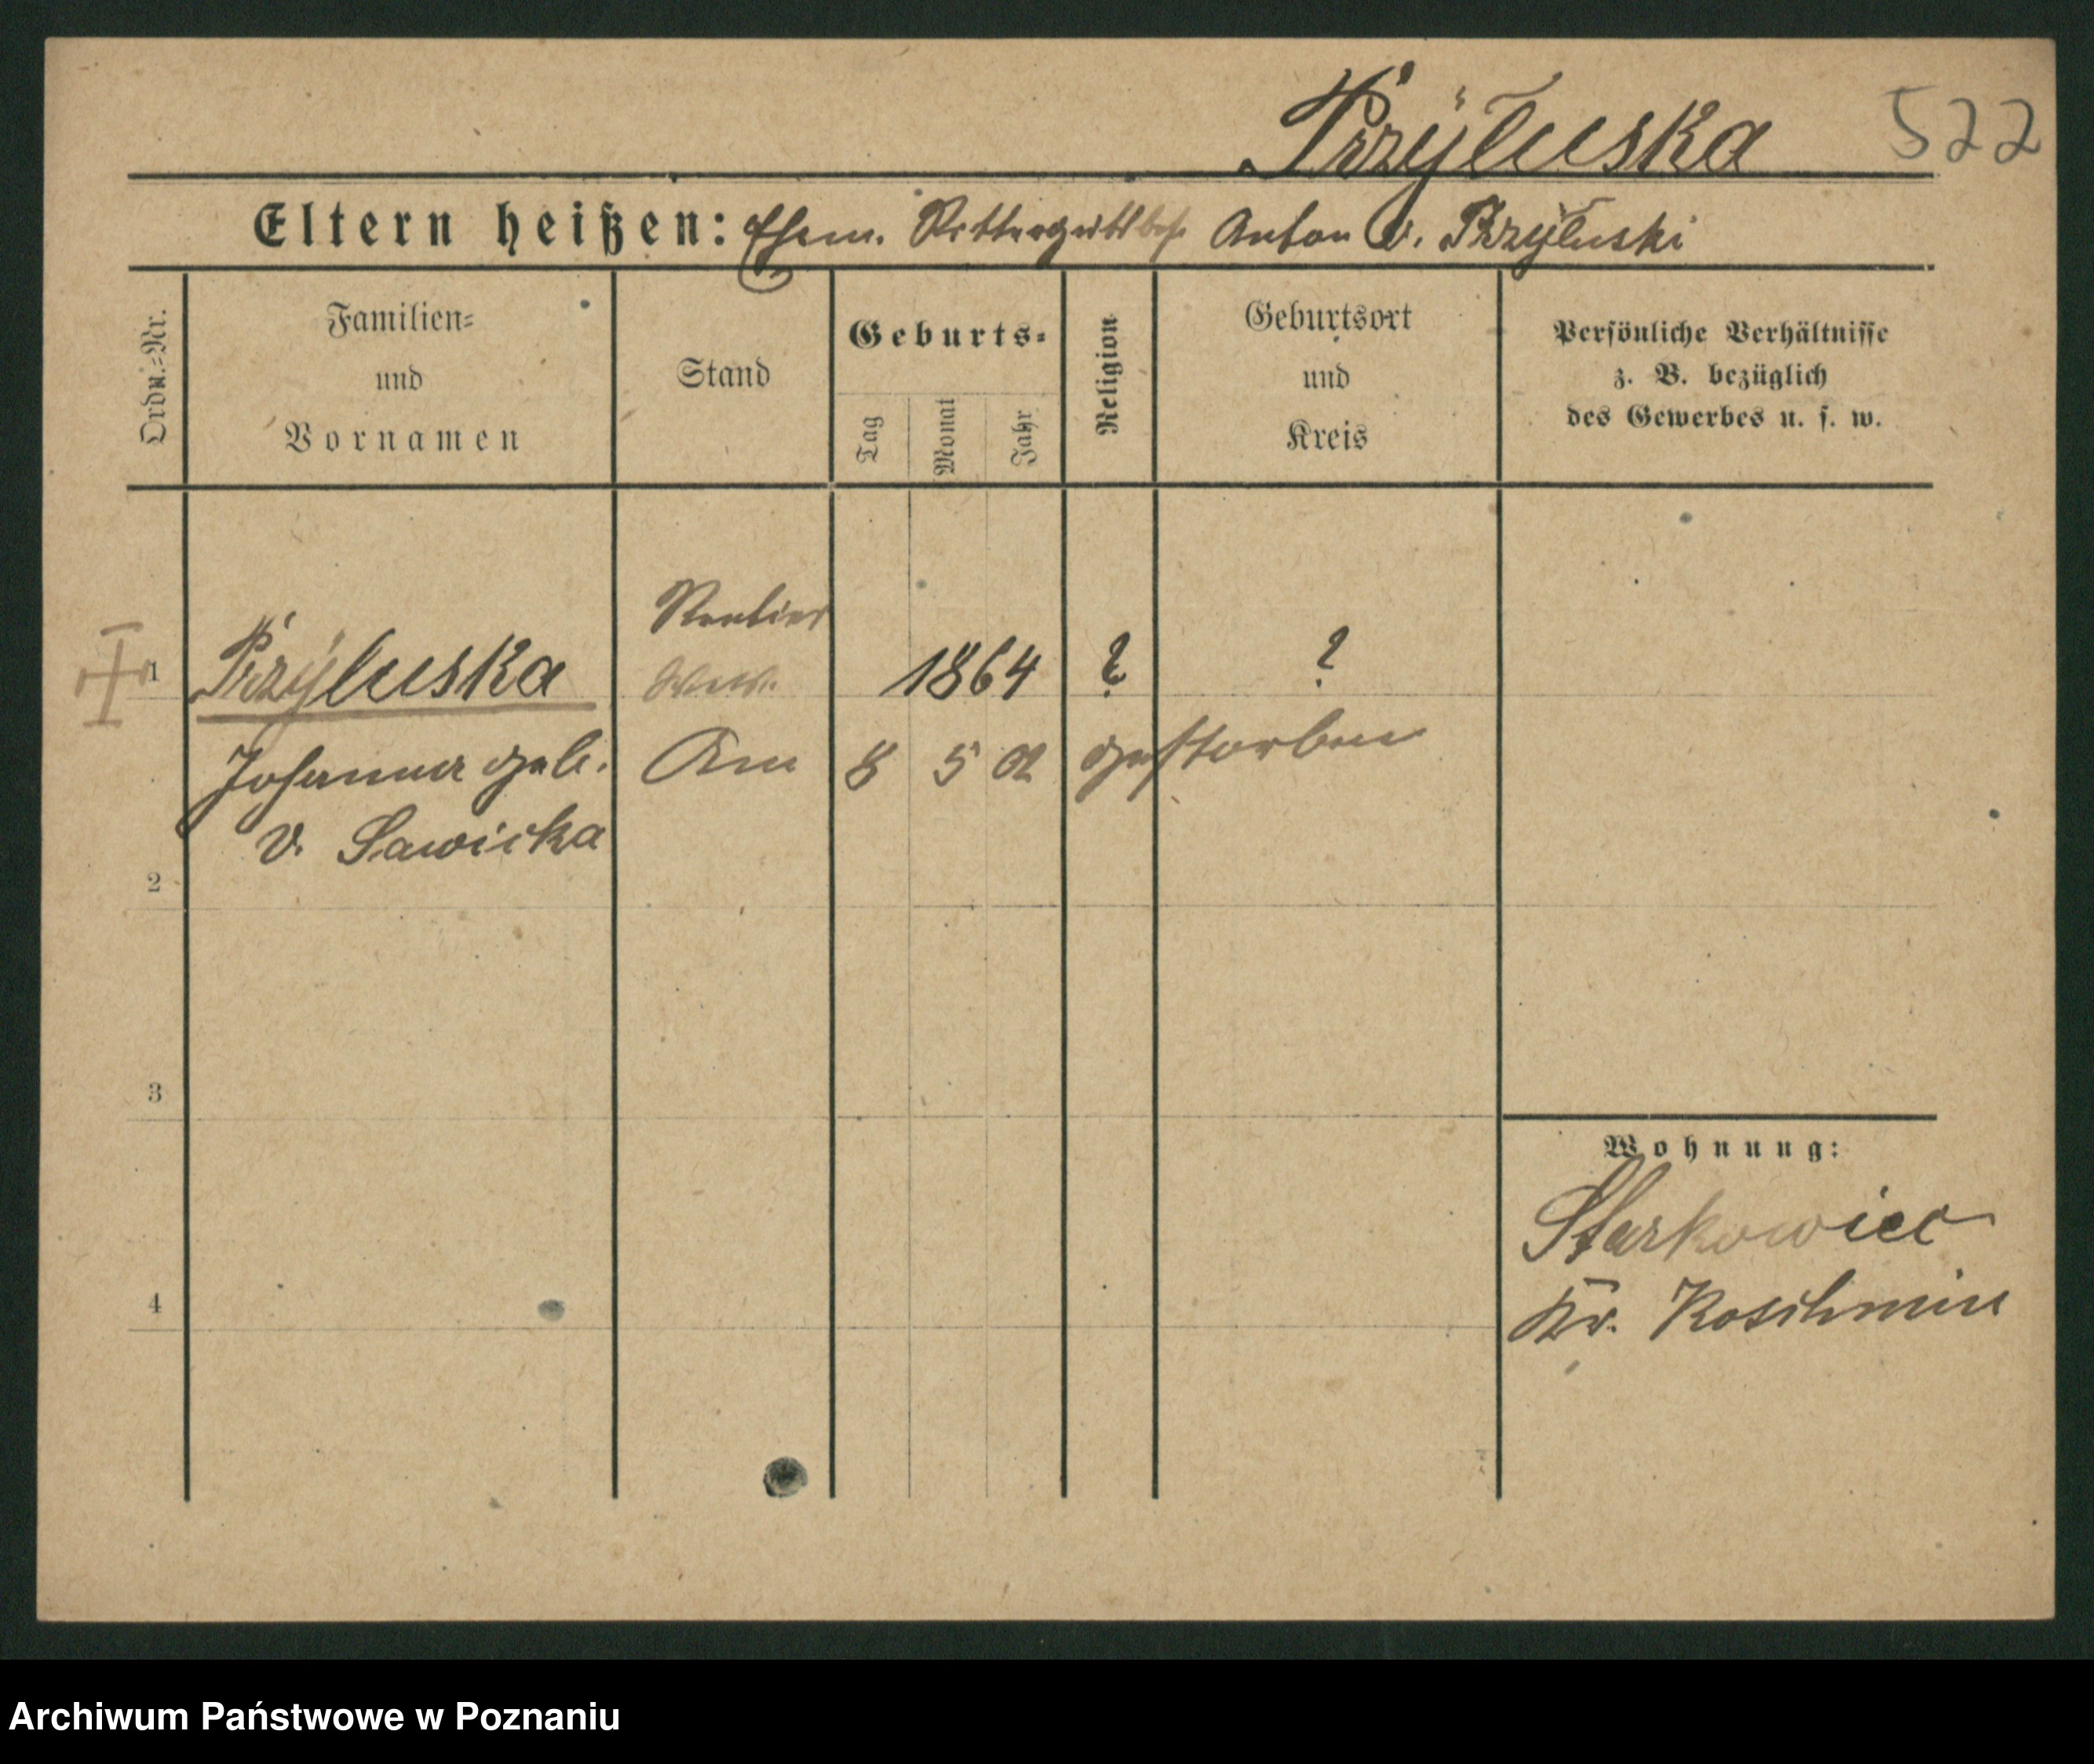 Przÿłuska 522
Eltern heißen: Ehem. Rittergutsbes. Anton v. Przÿłuski
Ordn.=Nr.
Familien=
und
Vornamen
Stand
Geburts=
Tag
Monat
Jahr
Religion
Geburtsort
und
Kreis
Persönliche Verhältnisse
z. B. bezüglich
des Gewerbes u. s. w.
Rentier
1 Przÿluska Wwe. 1864 ? ?
Johanna geb. Am 8 5 02 gestorben
v. Sawicka
2
3
Wohnung:
Starkowiec
4
Kr. Koschmin
Archiwum Państwowe w Poznaniu